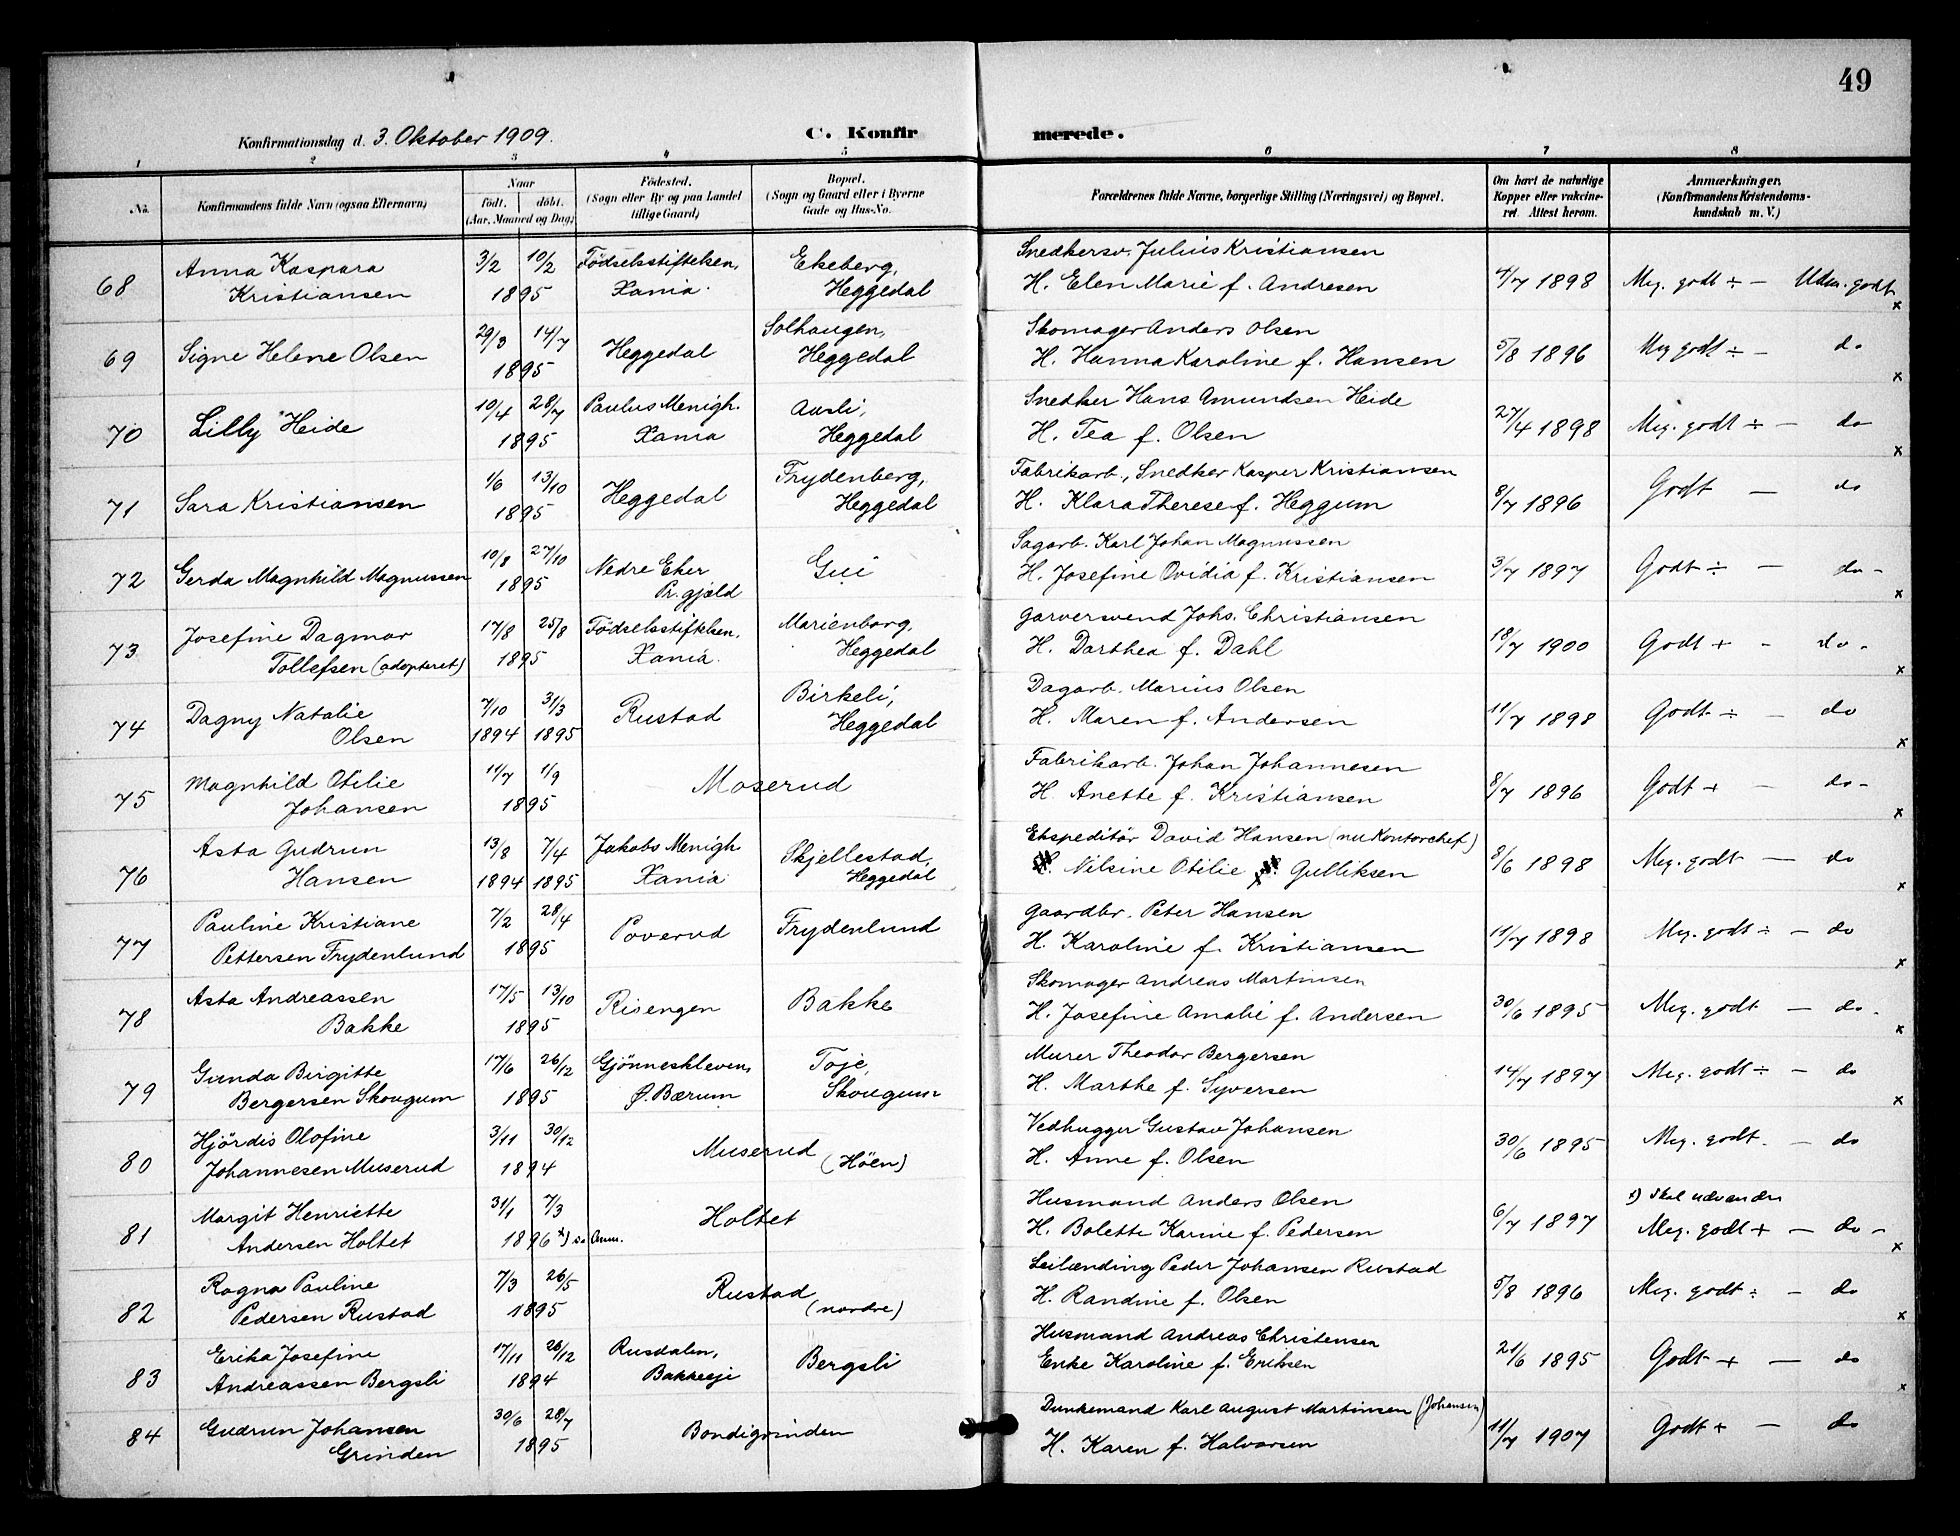 49
Konfirmationsdag d. 3. Oktober 1909. C. Konfir merede.
1 2 3 4 5 6 7 8
No. Konfirmandens fulde Navn (ogsaa Efternavn) Naar födt. döbt. (Aar, Maaned og Dag) Födested. (Sogn eller By og paa Landet tillige Gaard) Bopæl. (Sogn og Gaard eller i Byerne Gade og Hus-No. Forældrenes fulde Navne, borgerlige Stilling (Næringsvei) og Bopæl. Om havt de naturlige Kopper eller vaccineret. Attest herom. Anmærkninger. (Konfirmandens Kristendomskundskab m. V.)
Anna Kaspara 3/2 10/2 Födselsstiftelsen, Ekeberg, Snedkersv. Julius Kristiansen
68 Kristiansen 1895 Xania. Heggedal H. Elen Marie f. Andresen 4/7 1898 Meg. godt ÷ — Udm. godt x
29/3 14/7 Solhaugen, Skomager Anders Olsen
69 Signe Helene Olsen 1895 Heggedal Heggedal H. Hanna Karoline f. Hansen 5/8 1896 Meg godt ÷ — do x
10/4 28/7 Paulus Menigh. Aasli, Snedker Hans Amundsen Heide
70 Lilly Heide 1895 Xania Heggedal H. Tea f. Olsen 27/4 1898 Meg. godt ÷ — do x
1/6 13/10 Frydenberg, Fabrikarb., Snedker Kasper Kristiansen
71 Sara Kristiansen 1895 Heggedal Heggedal H. Klara Therese f. Heggum 8/7 1896 Godt — do
10/8 27/10 Nedre Eker Gui Sagarb. Karl Johan Magnussen
72 Gerda Magnhild Magnussen 1895 Pr.gjæld H. Josefine Ovidia f. Kristiansen 3/7 1897 Godt ÷ — do - x
Josefine Dagmar 17/8 25/8 Födselsstiftelsen, Marienborg, Garversvend Johs. Christiansen
73 Tollefsen (adopteret) 1895 Xania. Heggedal H. Dorthea f. Dahl 18/7 1900 Godt + - do - x
Dagny Natalie 7/10 31/3 Rustad Birkeli, Dagarb. Marius Olsen
74 Olsen 1894 1895 Heggedal H. Maren f. Andersen 11/7 1898 Godt ÷ — do x
Magnhild Otilie 11/7 1/9 Moserud Fabrikarb. Johan Johannesen
75 Johansen 1895 H. Anette f. Kristiansen 8/7 1896 Godt + — do - x
Asta Gudrun 13/8 7/4 Jakobs Menigh Skjellestad, Ekspeditör David Hansen (nu Kontorchef)
76 Hansen 1894 1895 Xania Heggedal Nilsine Otilie Gulliksen 8/6 1898 Meg. godt — do x
Pauline Kristiane 7/2 28/4 Poverud Frydenlund Gaardbr. Peter Hansen
77 Pettersen Frydenlund 1895 H. Karoline f. Kristiansen 11/7 1898 Meg. godt ÷ — do x
Asta Andreassen 17/5 13/10 Risengen Bakke Skomager Andreas Martinsen
78 Bakke 1895 H. Josefine Amalie f. Andersen 30/6 1895 Meg. godt — do - x
Gunda Birgitte 17/6 26/12 Gjönneskleven, Toje, Murer Theodor Bergersen
79 Bergersen Skougum 1895 Ø. Bærum Skougum H. Marthe f. Syversen 14/7 1897 Meg. godt ÷ — do x
Hjördis Olofine 3/11 30/12 Muserud Vedhugger Gustav Johansen
80 Johannesen Muserud 1894 (Höen) H. Anne f. Olsen 30/6 1895 Meg. godt. — do
Margit Henriette 31/1 7/3 Holtet Husmand Anders Olsen x) skal udvandre
81 Andersen Holtet 1896 x) se Anm. H. Bolette Karine f. Pedersen 6/7 1897 Meg. godt + — do - x
Ragna Pauline 7/3 26/5 Rustad Leilænding Peder Johansen Rustad
82 Pedersen Rustad 1895 (nordre) H. Randine f. Olsen 5/8 1896 Meg. godt ÷ — do x
Erika Josefine 17/11 26/12 Rusdalen, Bergsli Husmand Andreas Christensen
83 Andreassen Bergsli 1894 Bakkeeje Enke Karoline f. Eriksen 21/6 1895 Godt + — do x
Gudrun Johansen 30/6 28/7 Bondigrinden Dunkemand Karl August Martinsen (Johansen)
84 Grinden 1895 H. Karen f. Halvorsen 11/7 1907 Godt + — do